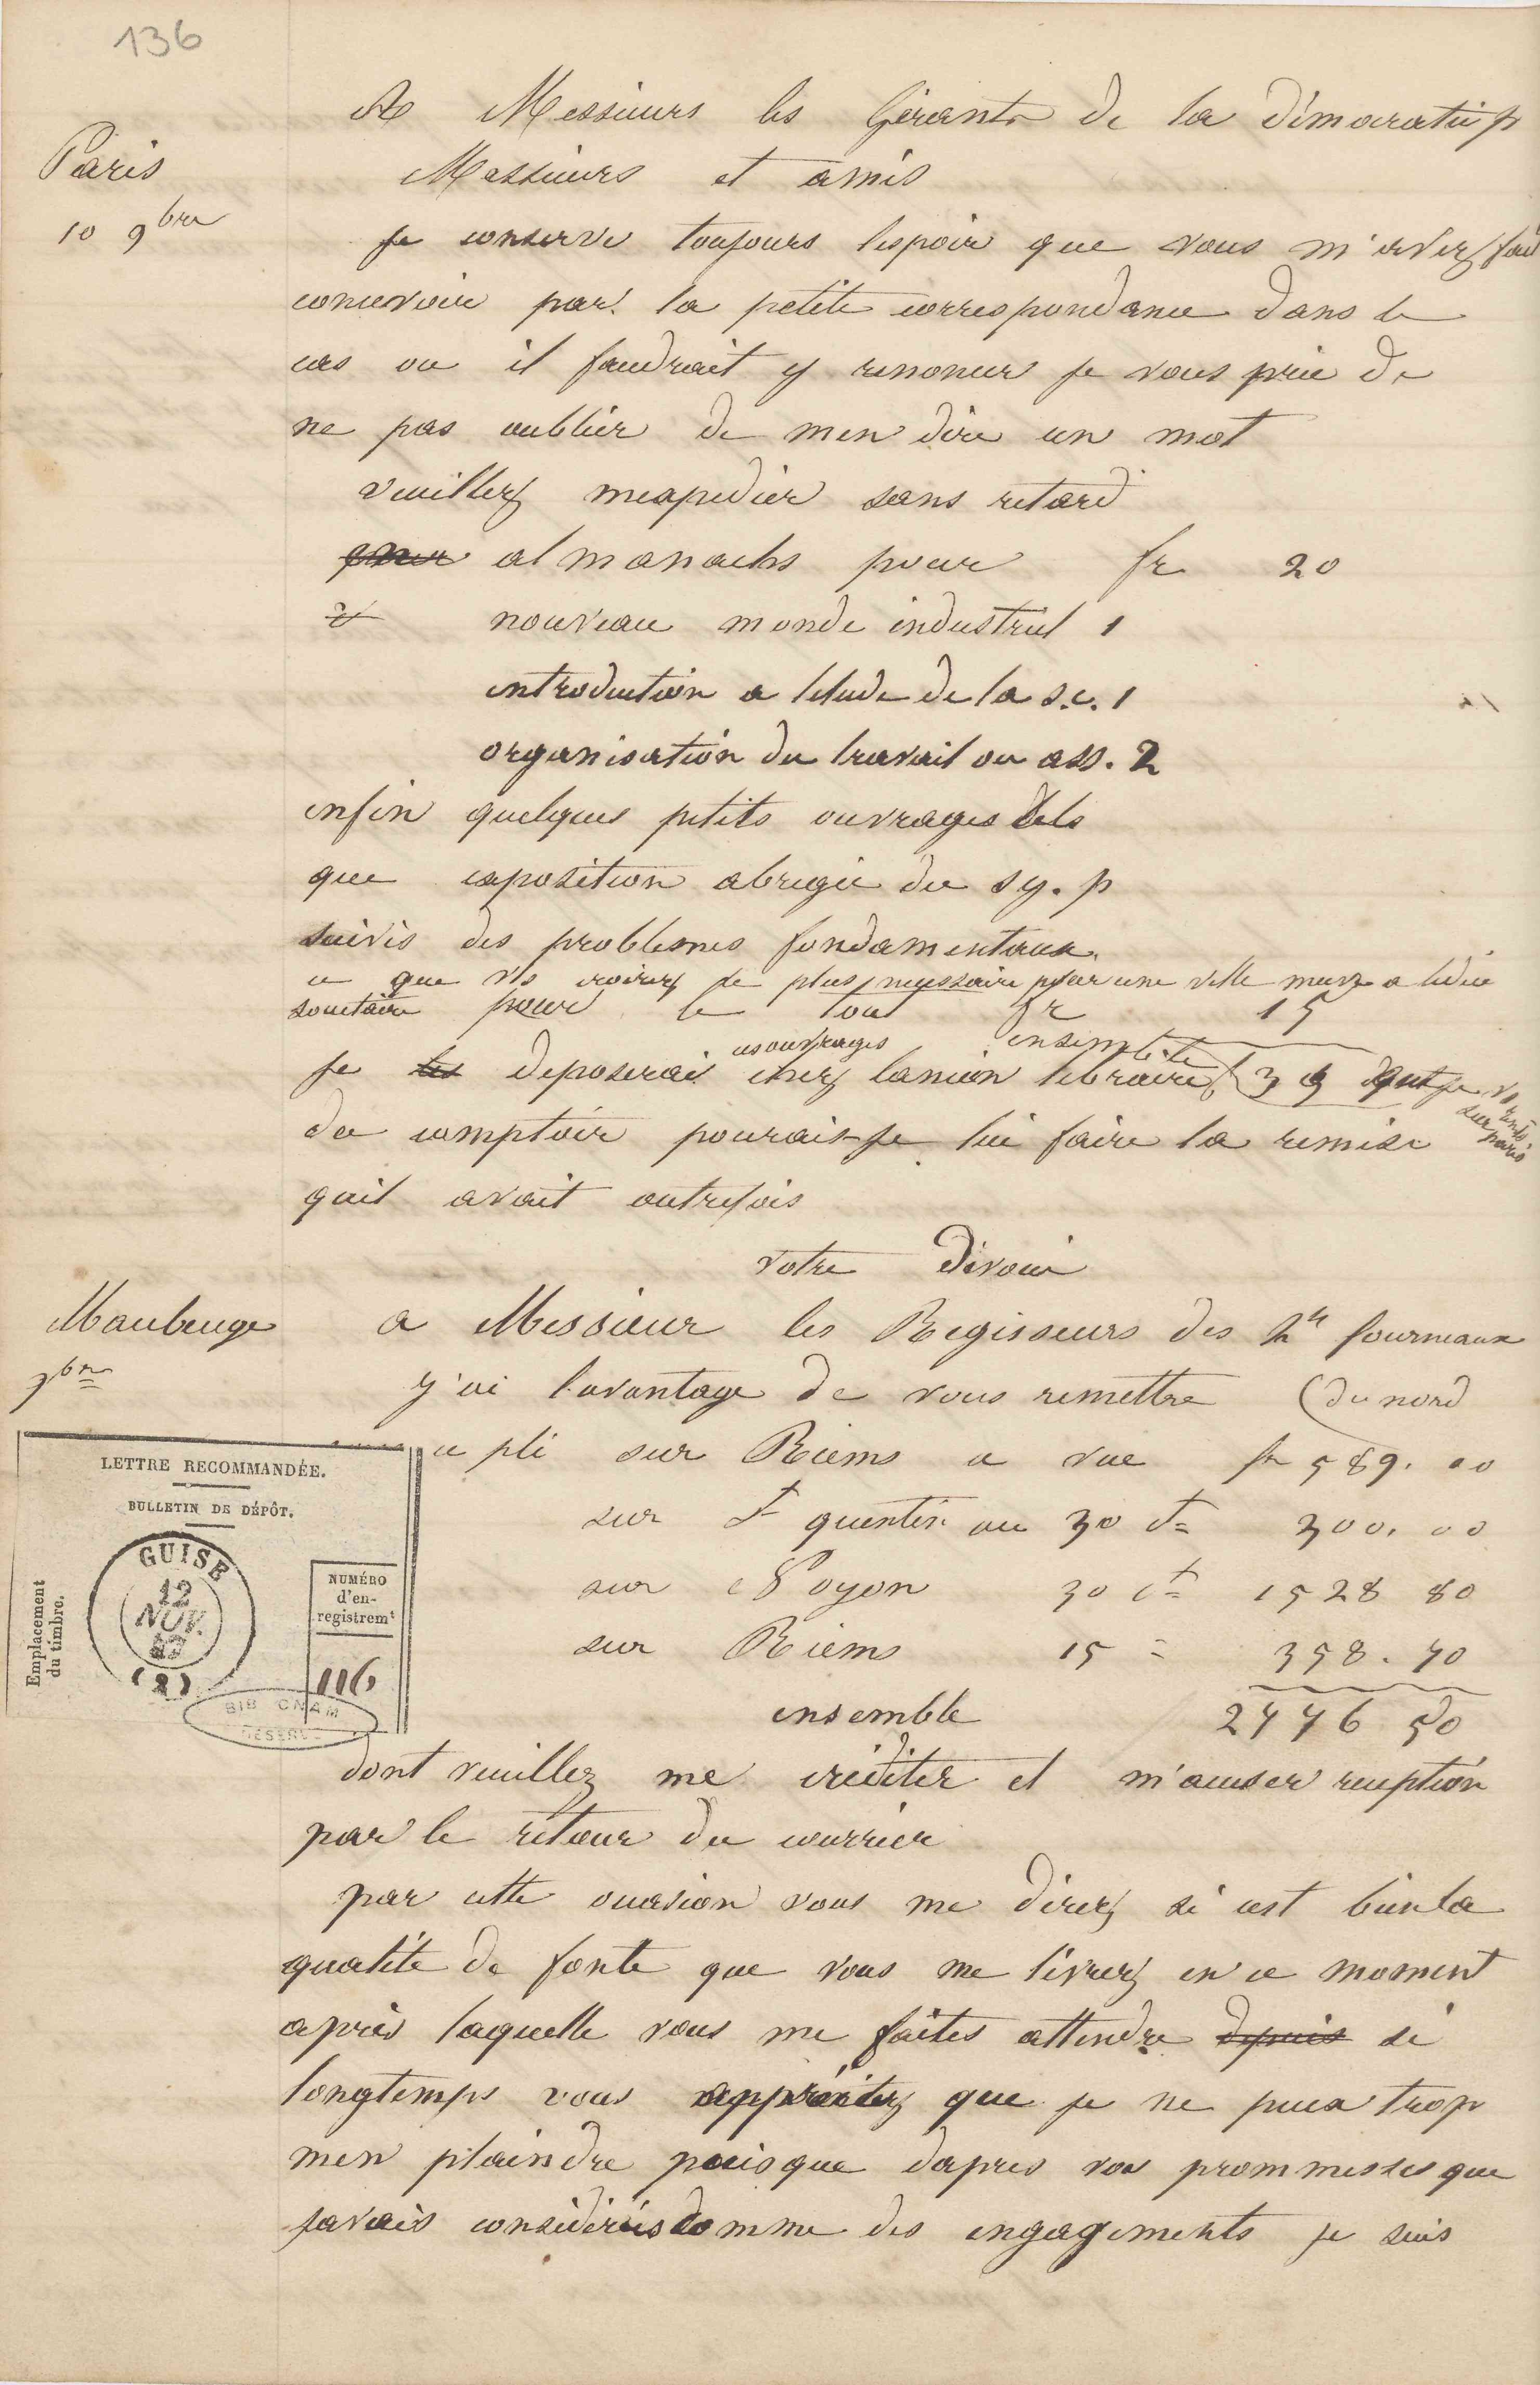 136
Paris
10 9bre
A Messieurs les Gérants de la démocratie p
Messieurs et amis
je conserve toujours lespoir que vous m'avez fait
concevoir par la petite correspondance dans le
cas ou il faudrait y renoncer je vous prie de
ne pas oublier de men dire un mot
veuillez mexpedier sans retard
almanachs pour fr 20
nouveau monde industriel 1
introduction a letude de la s.c. 1
organisation du travail ou ass. 2
enfin quelques petits ouvrages tels
que exposition abregée du sy. p
suivis des problemes fondamentaux
ce que vs croirez le plus necessaire pour une ville mure a lidée
societaire pour le tout fr 15
ces ouvrages ensemble
je les deposerai chez lanion libraire 39 dont je vs
crédite sur paris
du comptoir pourais-je lui faire la remise
quil avait autrefois
votre dévoué
Maubeuge
9bre
a Messieur les Regisseurs des hts fourneaux
(du nord
j'ai lavantage de vous remettre
ce pli sur Riems a vue fr 589. 00
sur St quentin au 30 ct 300. 00
sur Noyon 30 ct 1528 80
sur Riems 15 = 358. 70
ensemble 2776 50
LETTRE RECOMMANDÉE.
BULLETIN DE DÉPÔT.
Emplacement
du timbre.
GUISE
12
NOV.
(2)
NUMÉRO
d'en-
registremt
116
BIB CNAM
RESERVE
dont veuillez me créditer et m'accuser reception
par le retour du courrier
par cette occasion vous me direz si cest bien la
qualité de fonte que vous me livrez en ce moment
après laquelle vous me faites attendre depuis si
longtemps vous appréciez que je ne peux trop
men plaindre puisque dapres vos prommesses que
javais considérées comme des engagements je suis